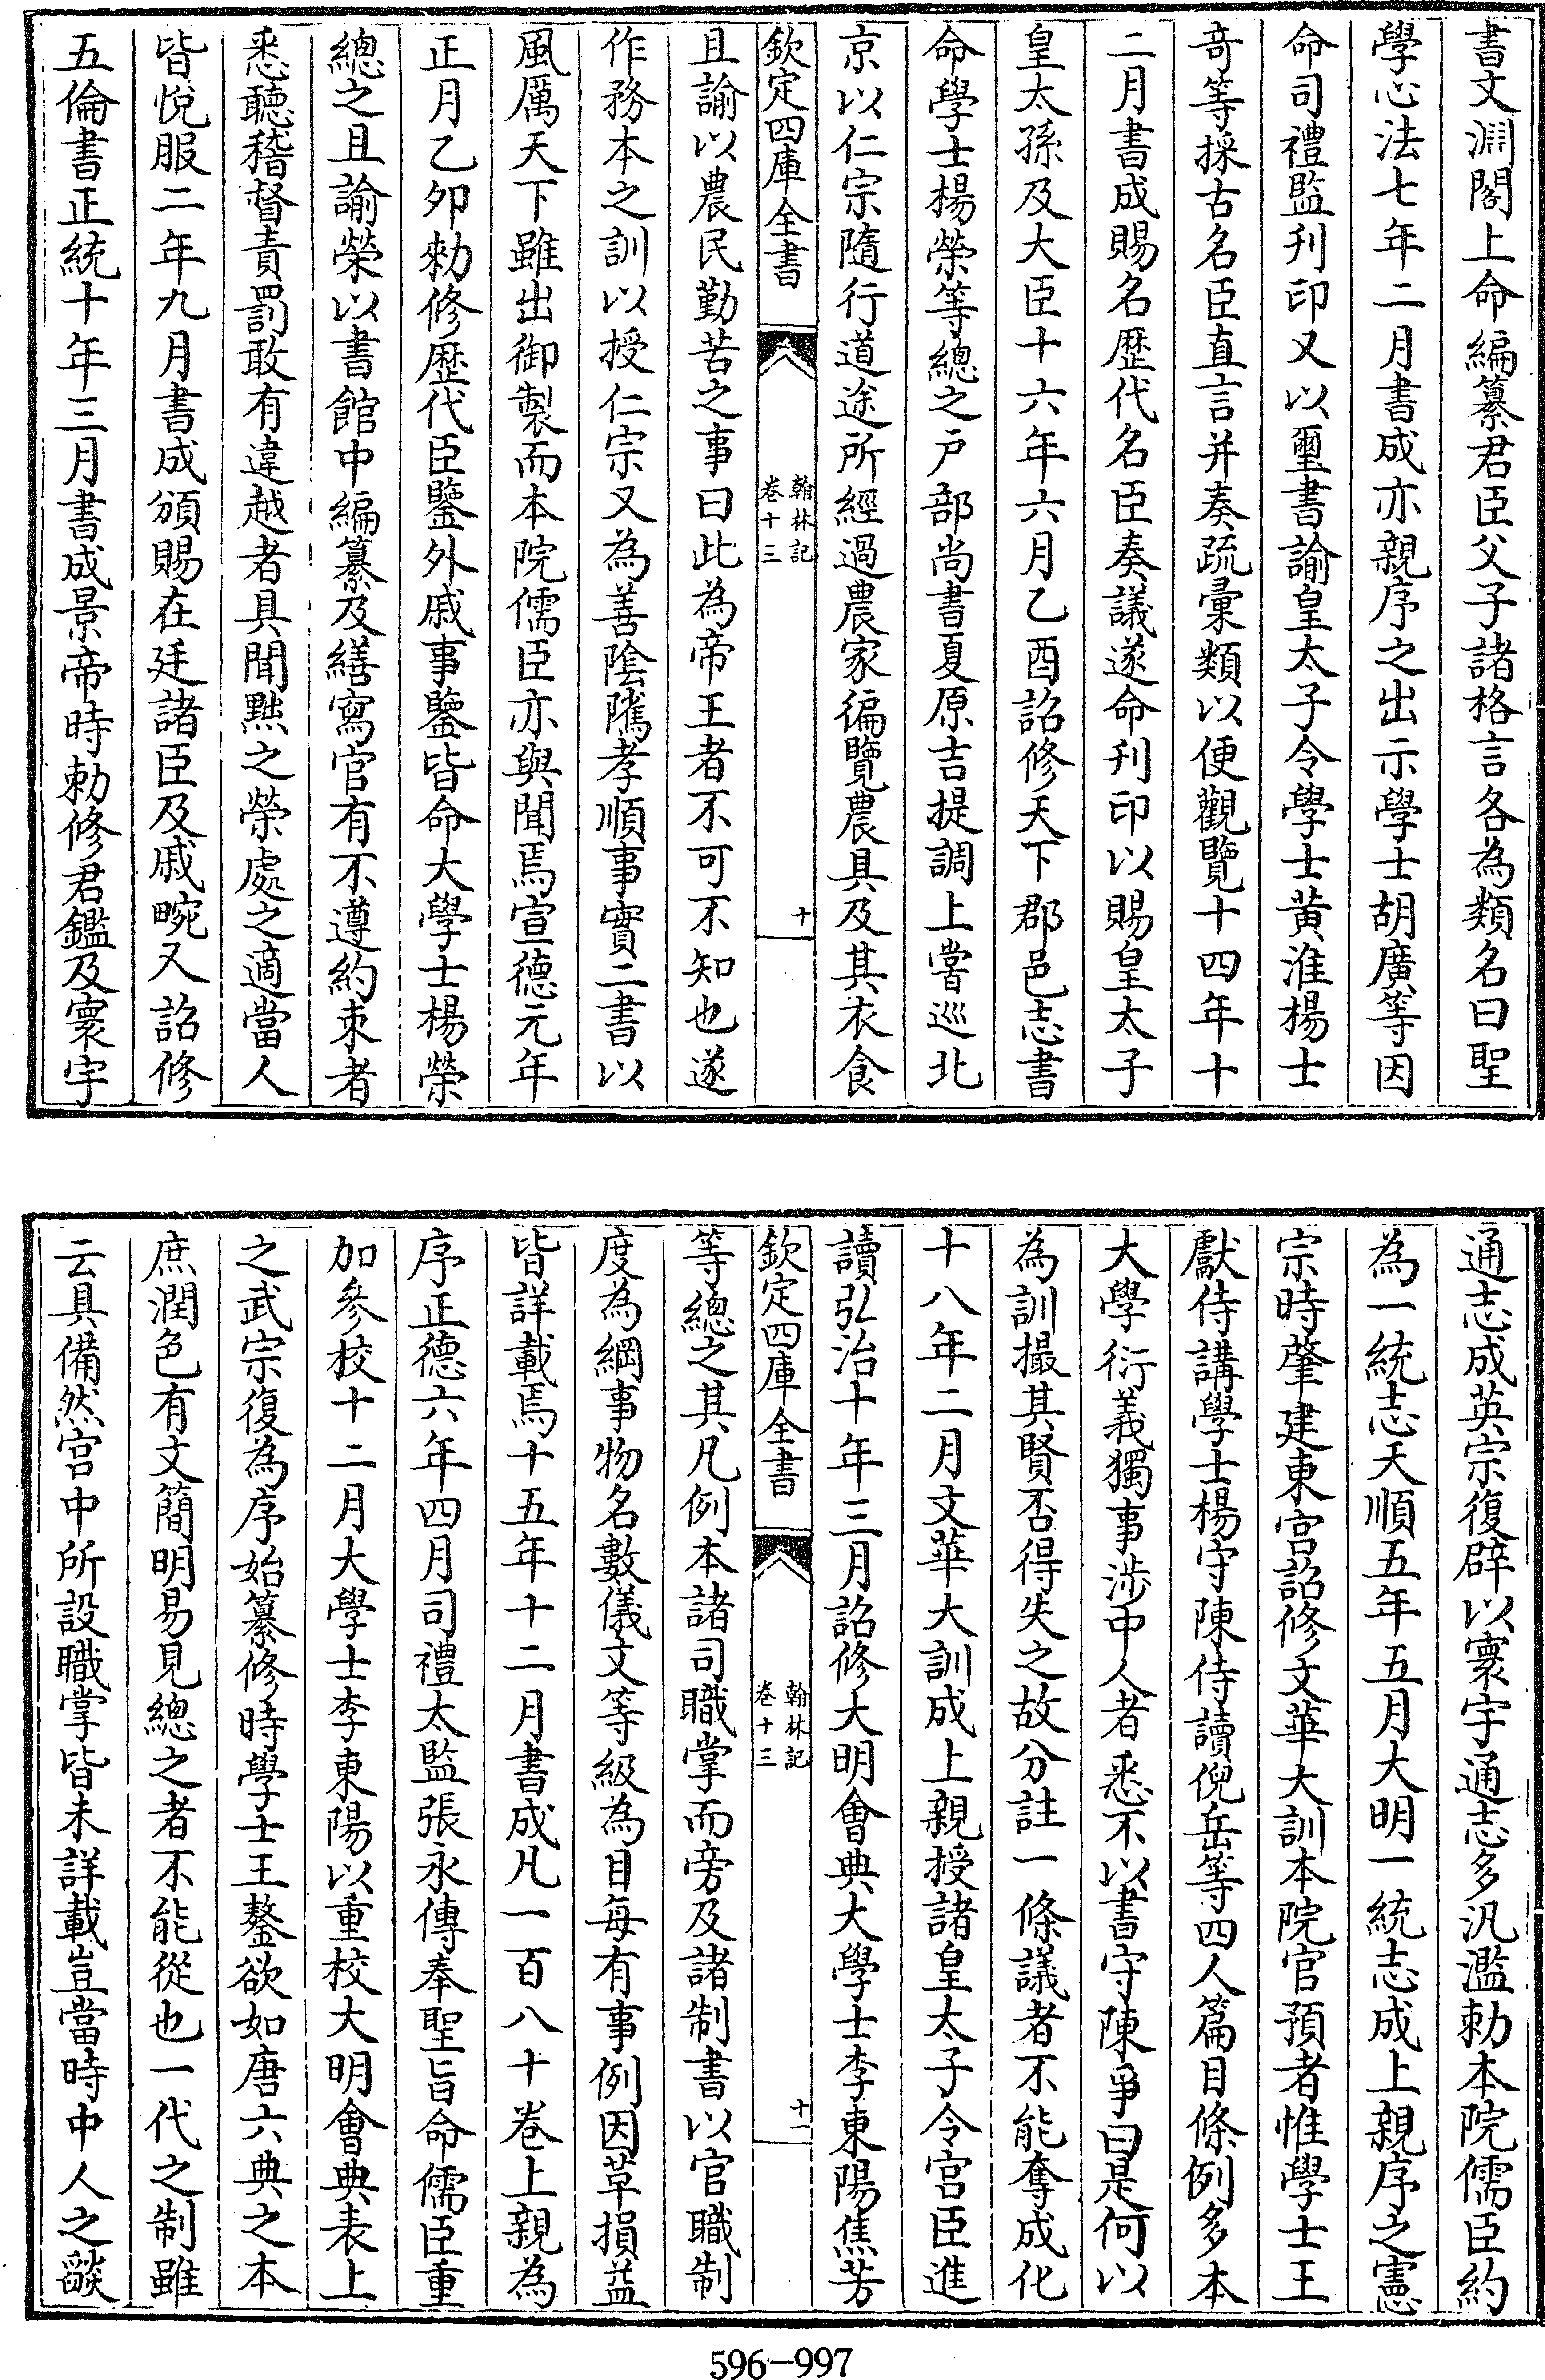 書文淵閣上命編纂君臣父子諸格言各為類名曰聖
學心法七年二月書成亦親序之出示學士胡廣等因
命司禮監刋印又以璽書諭皇太子令學士黄淮楊士
竒等採古名臣直言并奏疏彚類以便觀覽十四年十
二月書成賜名歴代名臣奏議遂命刋印以賜皇太子
皇太孫及大臣十六年六月乙酉詔修天下郡邑志書
命學士楊榮等總之户部尚書夏原吉提調上嘗巡北
京以仁宗隨行道途所經過農家徧覽農具及其衣食
欽定四庫全書
翰林記
卷十三
十
且諭以農民勤苦之事曰此為帝王者不可不知也遂
作務本之訓以授仁宗又為善隂隲孝順事實二書以
風厲天下雖出御製而本院儒臣亦與聞焉宣德元年
正月乙夘勅修歴代臣鑒外戚事鑒皆命大學士楊榮
總之且諭榮以書館中編纂及繕寫官有不遵約束者
悉聽稽督責罰敢有違越者具聞黜之榮處之適當人
皆悅服二年九月書成頒賜在廷諸臣及戚畹又詔修
五倫書正統十年三月書成景帝時勅修君鑑及寰宇
通志成英宗復辟以寰宇通志多汎濫勅本院儒臣約
為一統志天順五年五月大明一統志成上親序之憲
宗時肇建東宫詔修文華大訓本院官預者惟學士王
獻侍講學士楊守陳侍讀倪岳等四人篇目條例多本
大學衍義獨事涉中人者悉不以書守陳爭曰是何以
為訓撮其賢否得失之故分註一條議者不能奪成化
十八年二月文華大訓成上親授諸皇太子令宫臣進
讀弘治十年三月詔修大明會典大學士李東陽焦芳
欽定四庫全書
翰林記
卷十三
十一
等總之其凡例本諸司職掌而旁及諸制書以官職制
度為綱事物名數儀文等級為目每有事例因革損益
皆詳載焉十五年十二月書成凡一百八十卷上親為
序正德六年四月司禮太監張永傳奉聖旨命儒臣重
加參校十二月大學士李東陽以重校大明會典表上
之武宗復為序始纂修時學士王鏊欲如唐六典之本
庶潤色有文簡明易見總之者不能從也一代之制雖
云具備然宫中所設職掌皆未詳載豈當時中人之燄
596-997